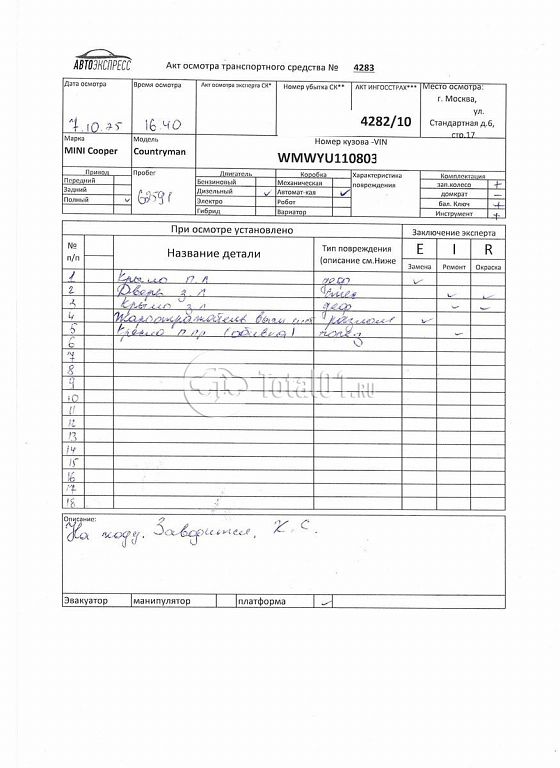 АВТОЭКСПРЕСС
Акт осмотра транспортного средства № 4283
Дата осмотра Время осмотра Акт осмотра эксперта СК* Номер убытка СК** АКТ ИНГОССТРАХ*** Место осмотра:
г. Москва,
ул.
Стандартная д.6,
стр.17
7.10.25 16.40 4282/10
Марка Модель Номер кузова -VIN
MINI Cooper Countryman WMWYU110803
Привод Пробег Двигатель Коробка Характеристика повреждения Комплектация
Передний Бензиновый Механическая зап.колесо +
Задний Дизельный ✓ Автомат-кая ✓ домкрат –
Полный ✓ Электро Робот бал. Ключ +
Гибрид Вариатор Инструмент +
При осмотре установлено Заключение эксперта
№ п/п Название детали Тип повреждения (описание см.Ниже E I R
Замена Ремонт Окраска
1 Крыло п.л ✓
2 Дверь з.л ✓ ✓
3 Крыло з.л деф – –
4 ✓
5 Кресло (обивка) –
6
7
8
9
10
11
12
13
14
15
16
17
18
Total01.RU
Описание:
На ходу. Заводится. К.С.
Эвакуатор манипулятор платформа ✓